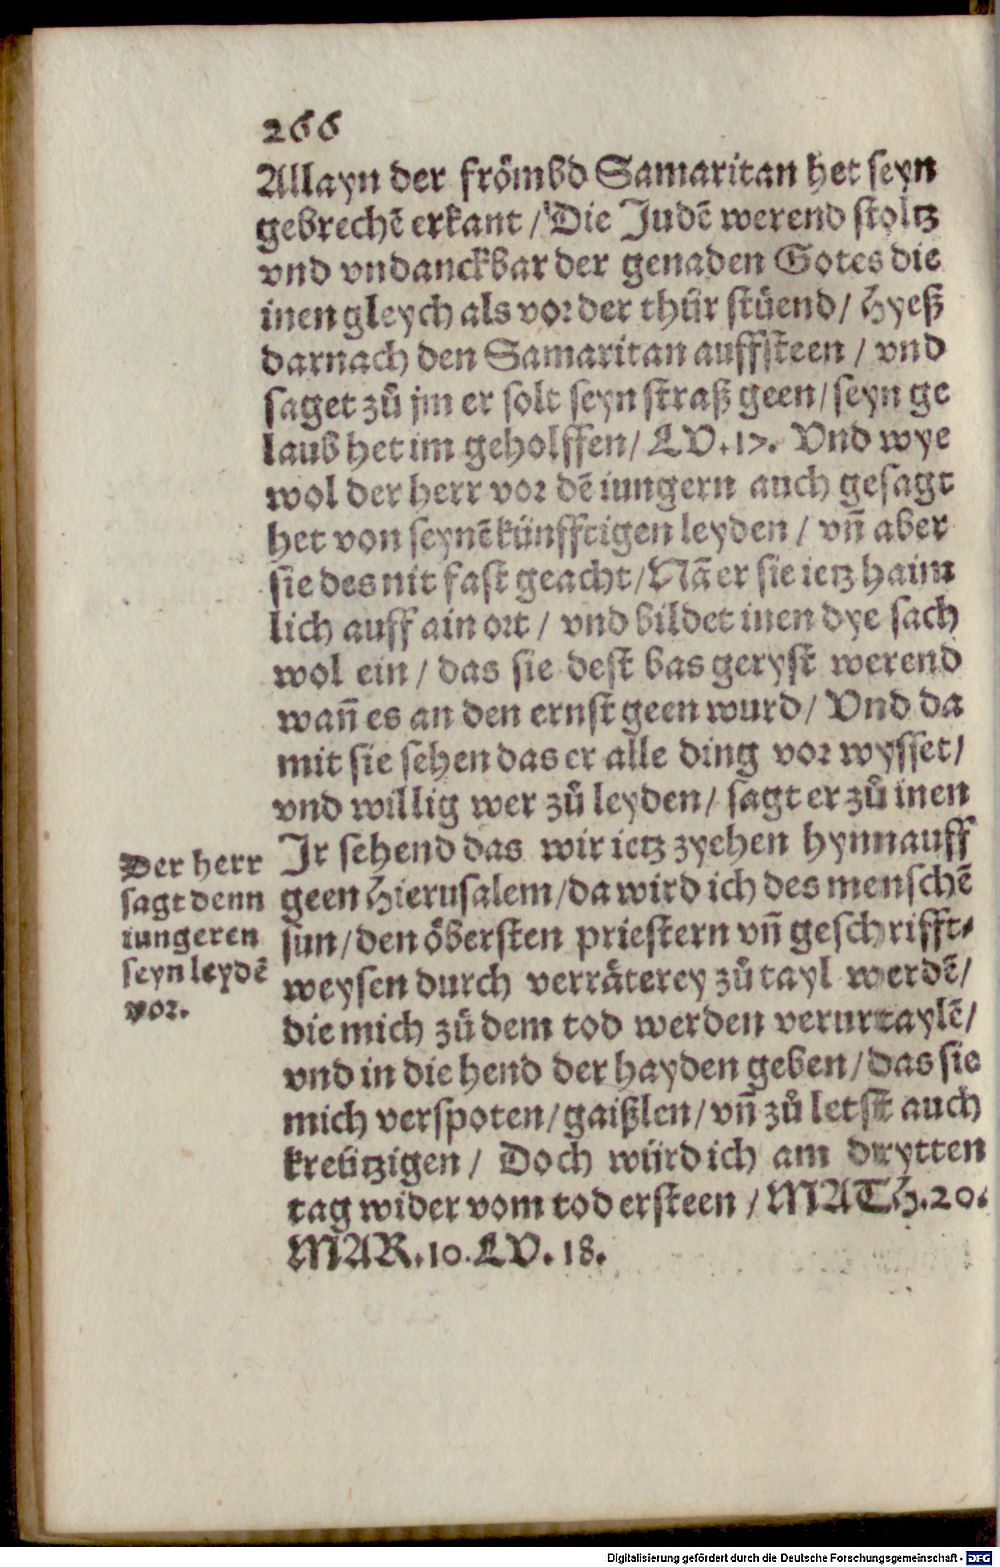 266
Allayn der frömbd Samaritan het seyn
gebrechē erkant / Die Judē werend stoltz
vnd vndanckbar der genaden Gotes die
inen gleych als vor der thür stüend / Hyeß
darnach den Samaritan auffsteen / vnd
saget zů jm er solt seyn straß geen / seyn ge
laub het im geholffen / LV. 17. Vnd wye
wol der herr vor dē iungern auch gesagt
het von seynē künfftigen leyden / vn̄ aber
sie des nit fast geacht / Nā er sie ietz haim
lich auff ain ort / vnd bildet inen dye sach
wol ein / das sie dest bas geryst werend
wan̄ es an den ernst geen wurd / Vnd da
mit sie sehen das er alle ding vor wysset /
vnd willig wer zů leyden / sagt er zů inen
Jr sehend das wir ietz zyehen hynnauff
geen Hierusalem / da wird ich des menschē
sun / den öbersten priestern vn̄ geschrifft⸗
weysen durch verräterey zů tayl werdē /
die mich zů dem tod werden verurtaylē /
vnd in die hend der hayden geben / das sie
mich verspoten / gaißlen / vn̄ zů letst auch
kreützigen / Doch würd ich am drytten
tag wider vom tod ersteen / MATH. 20.
MAR. 10. LV. 18.
Der herr
sagt denn
iungeren
seyn leydē
vor.
Digitalisierung gefördert durch die Deutsche Forschungsgemeinschaft - DFG